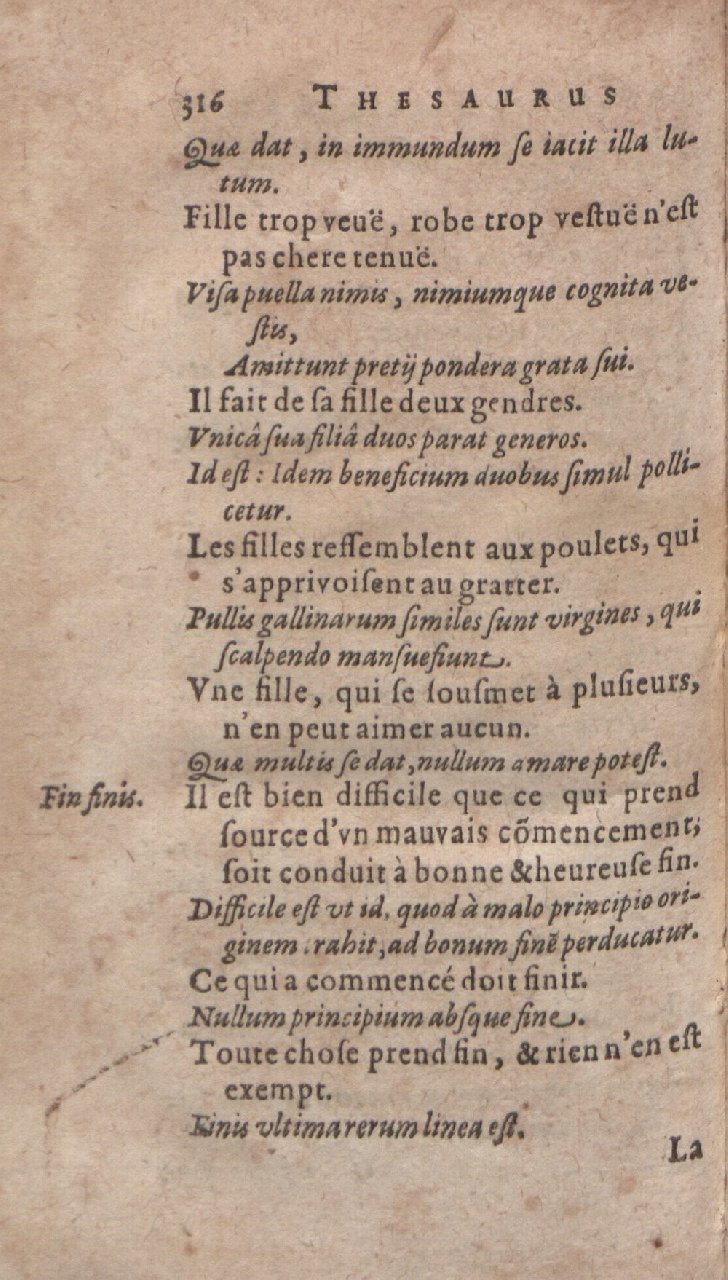 316 THESAURUS
Quæ dat, in immundum ſe iacit illa lu-
tum.
Fille trop veuë, robe trop veſtuë n'eſt
pas chere tenuë.
Viſa puella nimis, nimiumque cognita ve-
ſtis,
Amittunt pretij pondera grata ſui.
Il fait de ſa fille deux gendres.
Vnicâ ſua filiâ duos parat generos.
Id eſt : Idem beneficium duobus ſimul polli-
cetur.
Les filles reſſemblent aux poulets, qui
s'apprivoiſent au gratter.
Pullis gallinarum ſimiles ſunt virgines, qui
ſcalpendo manſuefiunt.
Vne fille, qui ſe ſouſmet à pluſieurs,
n'en peut aimer aucun.
Quæ multis ſe dat, nullum amare poteſt.
Fin finis. Il eſt bien difficile que ce qui prend
ſource d'vn mauvais cõmencement,
ſoit conduit à bonne & heureuſe fin.
Difficile eſt vt id, quod à malo principio ori-
ginem trahit, ad bonum finē perducatur.
Ce qui a commencé doit finir.
Nullum principium abſque fine.
Toute choſe prend fin, & rien n'en eſt
exempt.
Finis vltima rerum linea eſt.
La